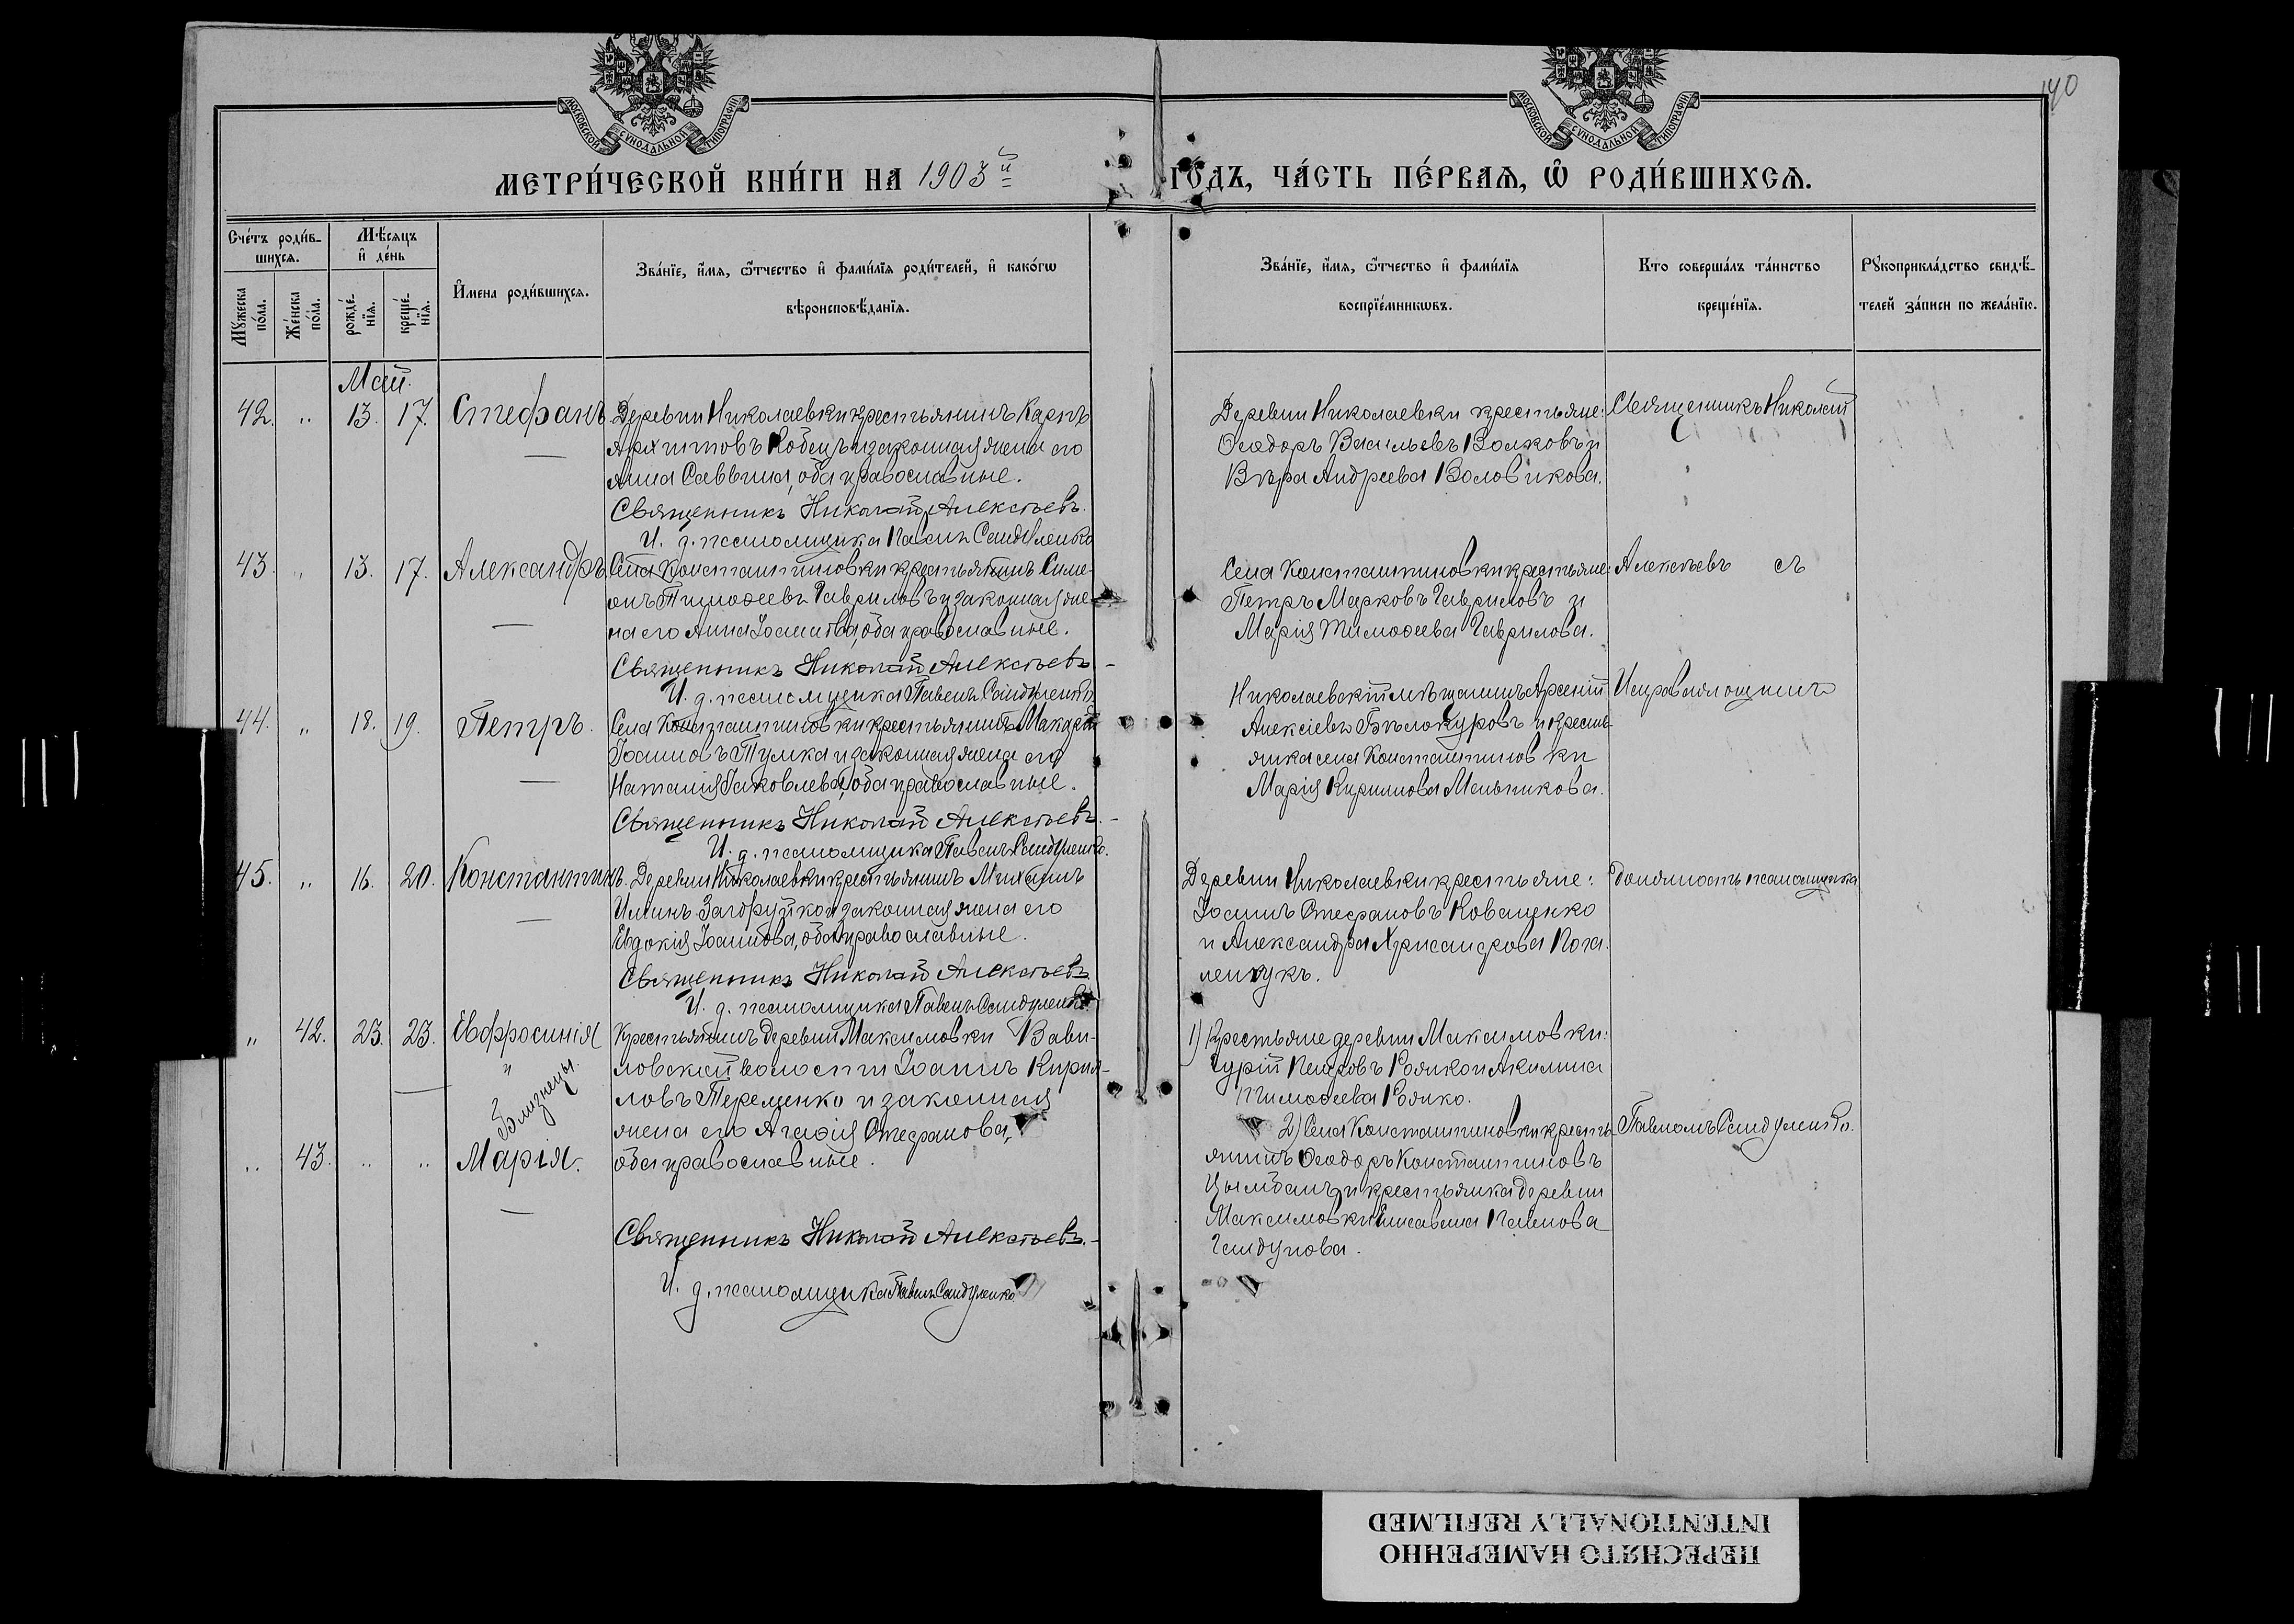 МОСКОВСКОЙ СѴНОДАЛЬНОЙ ТИПОГРАФІИ
МОСКОВСКОЙ СѴНОДАЛЬНОЙ ТИПОГРАФІИ
140
МЕТРИ́ЧЕСКОЙ КНИ́ГИ НА 1903й
ГО́ДЪ, ЧА́СТЬ ПЕ́РВАѦ, Ѡ҆ РОДИ́ВШИХСѦ.
Сче́тъ роди́в-
шихсѧ.
Мꙋжеска по́ла.
Же́нска по́ла.
Мѣ́сѧцъ
и҆ де́нь
рожде́-
нїѧ.
креще́-
нїѧ.
И҆мена роди́вшихсѧ.
Зва́нїе, и҆́мѧ, ѻ҆́тчество и҆ фами́лїѧ роди́телей, и҆ како́гѡ
вѣроисповѣ́данїѧ.
Зва́нїе, и҆́мѧ, ѻ҆́тчество и҆ фами́лїѧ
воспрїе́мникѡвъ.
Кто соверша́лъ та́инство
креще́нїѧ.
Рꙋкоприкла́дство свидѣ́-
телей за́писи по жела́нїю.
Май.
42. " 13. 17. Стефанъ
Деревни Николаевки крестьянинъ Карпъ
Архиповъ Кобецъ и законная жена его
Анна Саввина, оба православные.
Священникъ Николай Алексѣевъ.
И. д. псаломщика Павелъ Сандуленко
Деревни Николаевки крестьяне:
Ѳеодоръ Васильевъ Волковъ и
Вѣра Андреева Воловикова.
Священникъ Николай
43. " 13. 17. Александръ
Села Константиновки крестьянинъ Симе-
онъ Тимоѳеевъ Гавриловъ и законная же-
на его Анна Іоаннова, оба православные.
Священникъ Николай Алексѣевъ
И. д. псаломщика Павелъ Сандуленко
Села Константиновки крестьяне:
Петръ Марковъ Гавриловъ и
Марія Тимоѳеева Гаврилова.
Алексѣевъ съ
44. " 18. 19. Петръ.
Села Константиновки крестьянинъ
Іоанновъ Тулка и законная жена его
Наталія Яковлева, оба православные.
Священникъ Николай Алексѣевъ.
И. д. псаломщика Павелъ Сандуленко.
Николаевскій мѣщанинъ Арсеній
Алексіевъ Бѣлокуровъ и кресть-
янка села Константиновки
Марія Кириллова Мельникова.
Исправляющимъ
45. " 16. 20. Константинъ.
Деревни Николаевки крестьянинъ Михаилъ
Илиинъ Загоруйко и законная жена его
Евдокія Іоаннова, оба православные.
Священникъ Николай Алексѣевъ
И. д. псаломщика Павелъ Сандуленко
Деревни Николаевки крестьяне:
Іоаннъ Стефановъ Коваценко
и Александра Хрисанѳова
должность псаломщика
" 42. 23. 23. Евфросинія
"
Близнецы.
Крестьянинъ деревни Максимовки Вави-
ловской волости Іоаннъ Кирил-
ловъ Терещенко и законная
жена его Агаѳія Стефанова,
оба православные.
1) Крестьяне деревни Максимовки:
Гурій Петровъ Бойко и Акилина
Тимоѳеева Бойко.
" 43. " " Марія.
2) Села Константиновки кресть-
янинъ Ѳеодоръ Константиновъ
Цымбалъ и крестьянка деревни
Максимовки Елисавета Павлова
Гайдукова.
Павломъ Сандуленко.
Священникъ Николай Алексѣевъ.
И. д. псаломщика Павелъ Сандуленко
INTENTIONALLY REFILMED
ПЕРЕСНЯТО НАМЕРЕННО